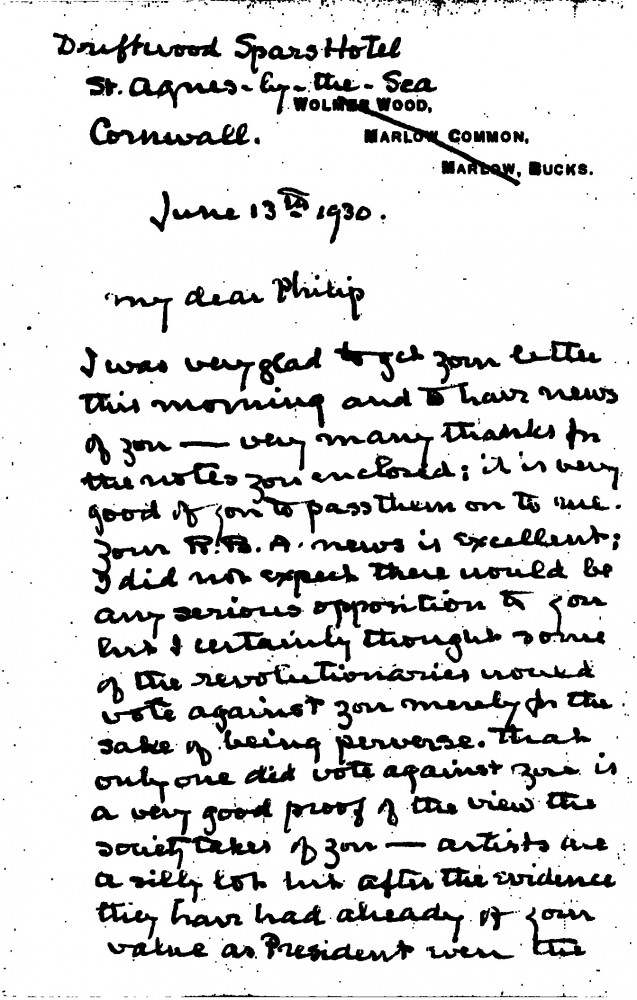 Driftwood Spars Hotel
St. Agnes-by-the-Sea
Cornwall.
WOLMER WOOD,
MARLOW COMMON,
MARLOW, BUCKS.
June 13th 1930.
My dear Philip
I was very glad to get your letter
this morning and to have news
of you — very many thanks for
the notes you enclosed; it is very
good of you to pass them on to me.
Your R.B.A. news is excellent;
I did not expect there would be
any serious opposition to you
but I certainly thought some
of the revolutionaries would
vote against you merely for the
sake of being perverse. That
only one did vote against you is
a very good proof of the view the
society takes of you — artists are
a silly lot but after the evidence
they have had already of your
value as President even the